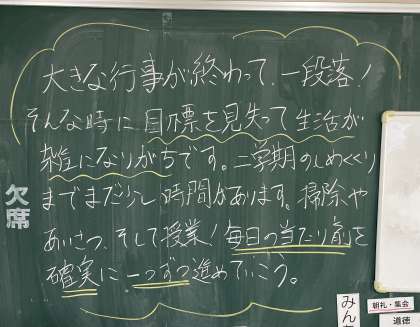 大きな行事が終わって、一段落！
そんな時に目標を見失って生活が
雑になりがちです。二学期のしめくくり
までまだ少し時間があります。掃除や
あいさつ、そして授業！毎日の当たり前を
確実に一つずつ進めていこう。
欠席
みん
朝礼・集会
道徳